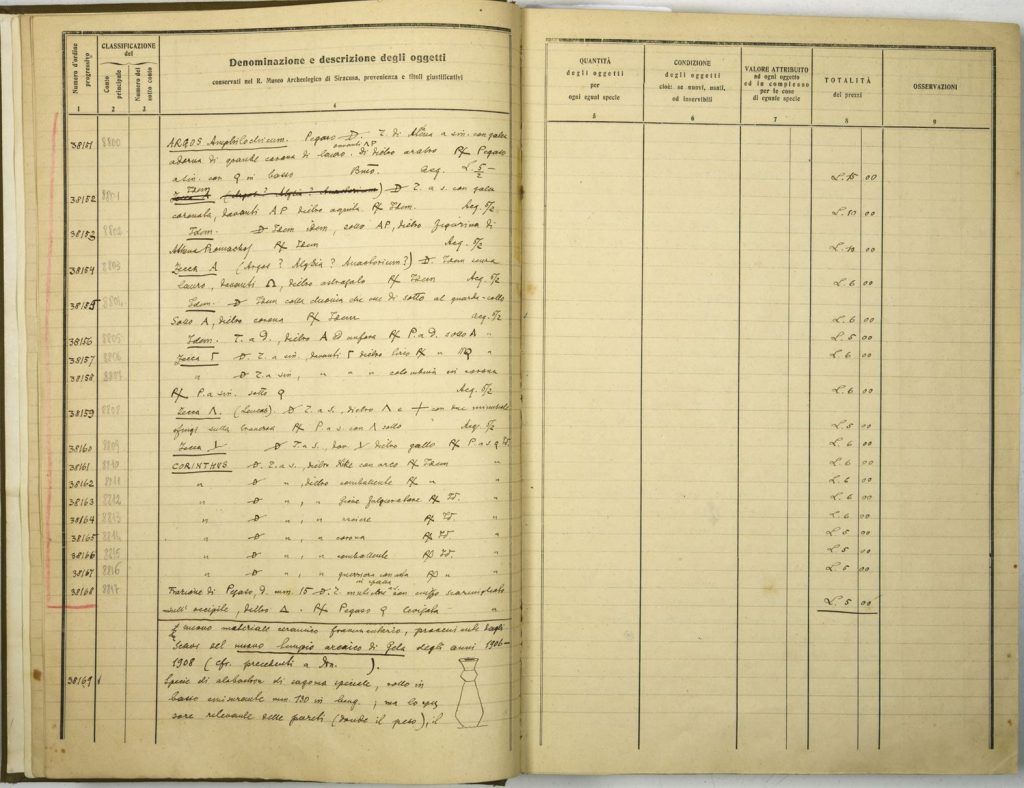 Numero d'ordine progressivo
CLASSIFICAZIONE
del
Conto principale
Numero del sotto conto
Denominazione e descrizione degli oggetti
conservati nel R. Museo Archeologico di Siracusa, provenienza e titoli giustificativi
1 2 3 4
38151 8800 ARGOS Amphilochicum. Pegaso D. T. di Atena a sin. con galea
davanti AP
adorna di grande corona di lauro. di dietro aratro R/ Pegaso
a sin. con Q in basso Acq. L. 5/2
Idem
38152 8801 (Argos? Alyzia? Anactorium) D T. a s. con galea
coronata, davanti AP dietro aquila R/ Idem. Acq. 5/2
38153 8802 Idem. D Idem idem, sotto AP, dietro figurina di
Athena Promachos R/ Idem Acq. 5/2
38154 8803 Zecca A (Argos? Alyzia? Anactorium?) D. Idem senza
lauro, davanti dietro astragalo R/ Idem Acq. 5/2
38155 8804 Idem. D Idem colla che di sotto al guarda-collo
Sotto A, dietro corona R/ Idem Acq. 5/2
38156 8805 Idem. T. a d., dietro A ed anfora R/ P. a d. sotto A "
38157 8806 Zecca Γ D. T. a sin. davanti Γ dietro R/ " "
38158 8807 " D T. a sin, " " " colomba in corona
R/ P. a sin. sotto Q Acq. 5/2
38159 8808 Zecca Λ. (Leucas). D T. a s., dietro Λ e con due minuscole
sfingi sulla R/ P. a s. con Λ sotto Acq. 5/2
38160 8809 Zecca D T. a s. dav. dietro gallo R/ P. a s. Q Id.
38161 8810 CORINTHUS D. T. a s., dietro Nike con arco R/ Idem "
38162 8811 " D " , dietro combattente R/ " "
38163 8812 " D " , " Giove fulguratore R/ Id. "
38164 8813 " D " , " R/ Id. "
38165 8814 " D " , " corona R/ Id. "
38166 8815 " D " , " combattente R/ Id. "
38167 8816 " D " , " guerriero con asta R/ " "
in spalla
38168 8817 Frazione di Pegaso, d. mm. 15 D. T. muliebre con
sull' occipite, dietro Δ. R/ Pegaso Q "
nuovo materiale ceramico frammentario, proveniente dagli
Scavi del nuovo tempio arcaico di Gela degli anni 1906-
1908 (cfr. precedenti a No. ).
38169 Specie di alabastron di sagoma speciale, rotto in
basso misurante mm. 130 in lung.; ma lo spes
sore rilevante delle pareti (donde il peso), il
QUANTITÀ
degli oggetti
per
ogni egual specie
CONDIZIONE
degli oggetti
cioè: se nuovi, usati,
od inservibili
VALORE ATTRIBUITO
ad ogni oggetto
od in complesso
per le cose
di eguale specie
TOTALITÀ
dei prezzi
OSSERVAZIONI
5 6 7 8 9
L. 15 00
L. 10 00
L. 10 00
L. 6 00
L. 6 00
L. 5 00
L. 6 00
L. 6 00
L. 5 00
L. 6 00
L. 6 00
L. 6 00
L. 6 00
L. 6 00
L. 5 00
L. 5 00
L. 5 00
L. 5 00